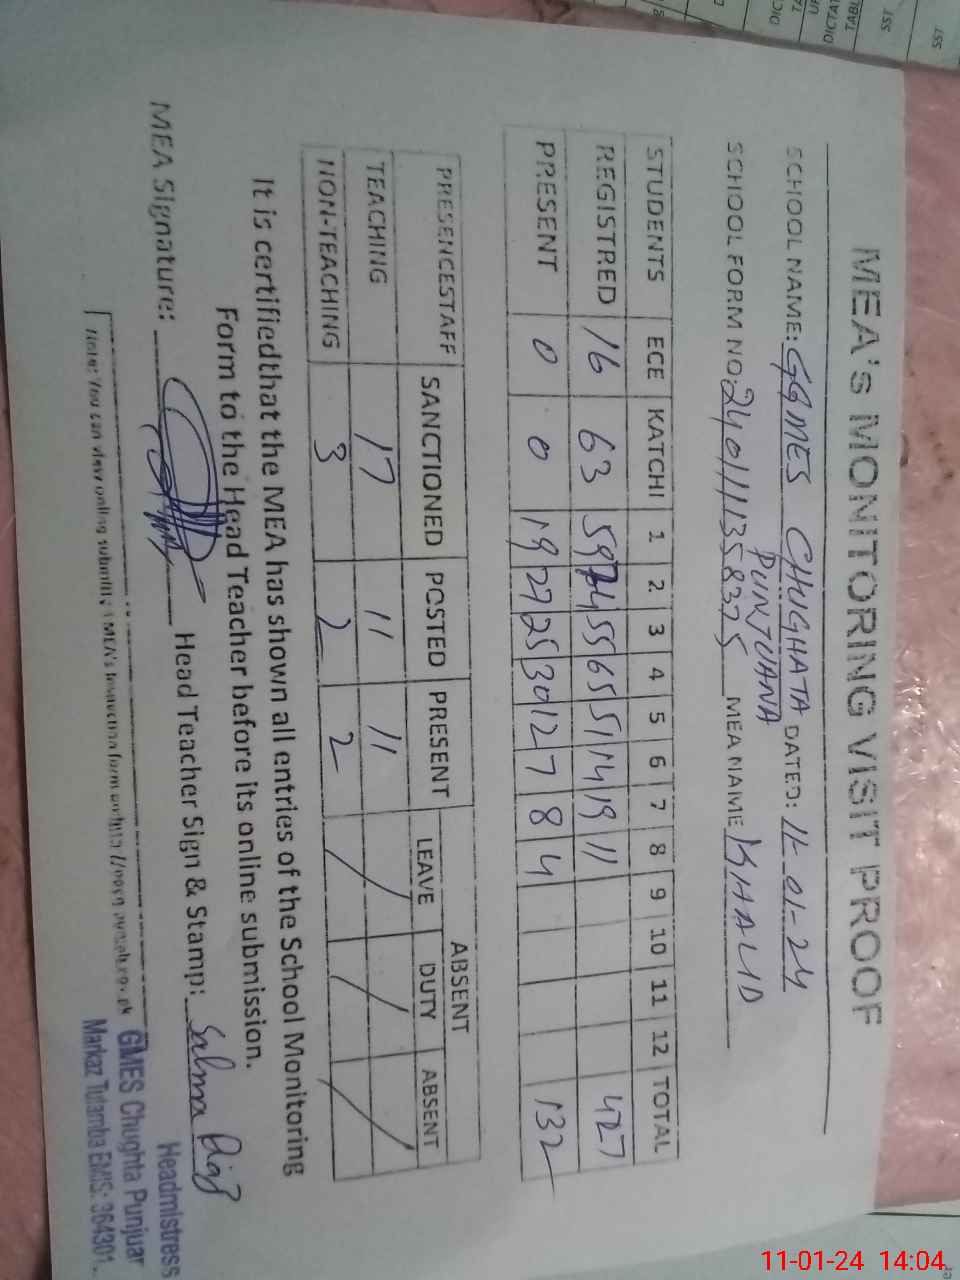 MEA's MONITORING VISIT PROOF
SCHOOL NAME: GGMES CHUGHATA PUNJUANA DATED: 11-01-24
SCHOOL FORM NO: 2401111358375 MEA NAME KHALID
STUDENTS ECE KATCHI 1 2 3 4 5 6 7 8 9 10 11 12 TOTAL
REGISTRED 16 63 59 74 55 65 51 14 19 11 427
PRESENT 0 0 19 27 25 30 12 7 8 4 132
PRESENCESTAFF SANCTIONED POSTED PRESENT ABSENT
LEAVE DUTY ABSENT
TEACHING 17 11 11
NON-TEACHING 3 2 2
It is certifiedthat the MEA has shown all entries of the School Monitoring
Form to the Head Teacher before its online submission.
MEA Signature: Head Teacher Sign & Stamp: Salma
Headmistress
GMES Chughta Punjuar
Markaz Tulamba EMIS: 364301
Note: You can view online submitted MEA's
SST
SST
11-01-24 14:04